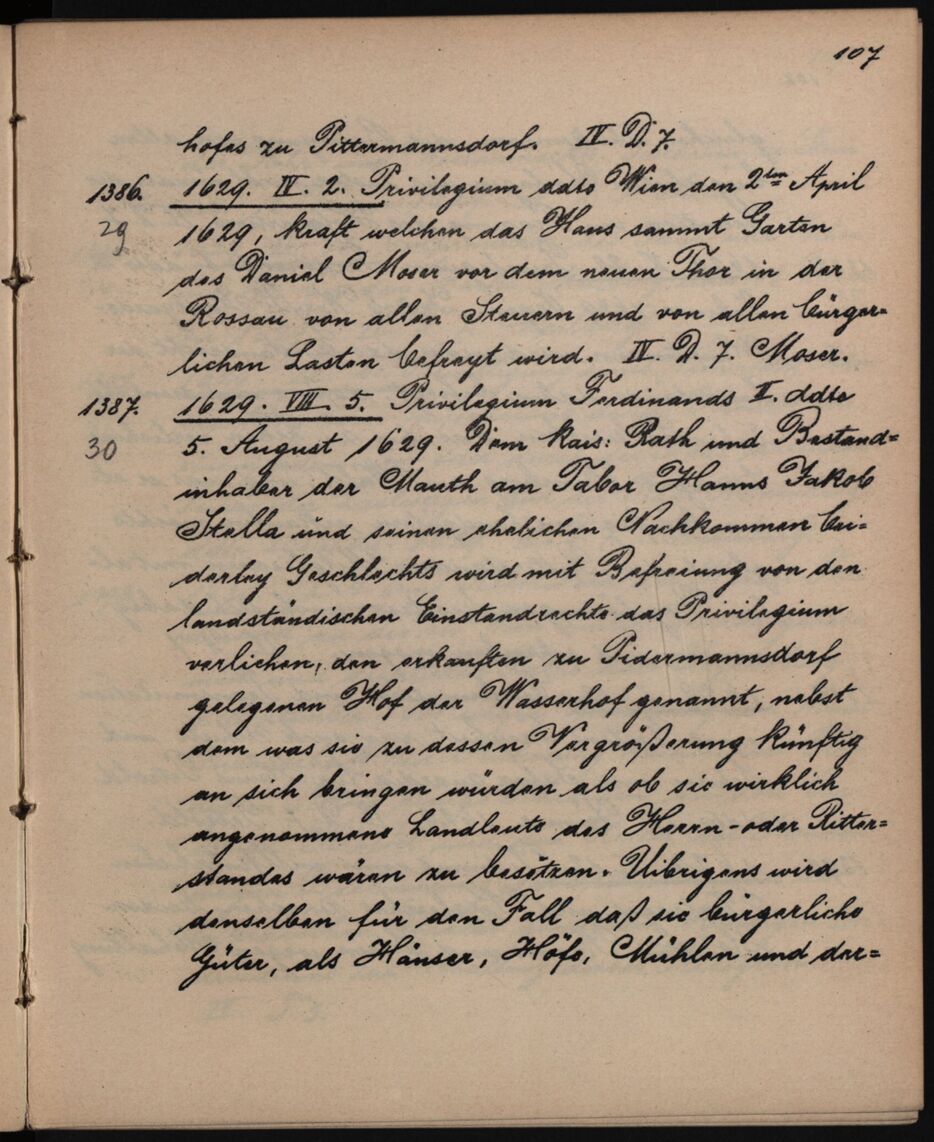 107
hofes zu Pittermannsdorf. IV. D. 7.
1386. 1629. IV. 2. Privilegium ddto Wien den 2ten April
29 1629, kraft welchen das Haus sammt Garten
des Daniel Moser vor dem neuen Thor in der
Rossau von allen Steuern und von allen bürger=
lichen Lasten befreyt wird. IV. D. 7. Moser.
1387. 1629. VIII. 5. Privilegium Ferdinands II. ddto
30 5. August 1629. Dem kais: Rath und Bestand=
inhaber der Mauth am Tabor Hanns Jakob
Stella und seinen ehelichen Nachkommen bei=
derley Geschlechts wird mit Befreiung von den
landständischen Einstandrechte das Privilegium
verlichen, den erkauften zu Pidermannsdorf
gelegenen Hof der Wasserhof genannt, nebst
dem was sie zu dessen Vergrößerung künftig
an sich bringen würden als ob sie wirklich
angenommene Landleute des Herrn-oder Ritter=
standes wären zu besitzen. Uibrigens wird
denselben für den Fall daß sie bürgerliche
Güter, als Häuser, Höfe, Mühlen und der=